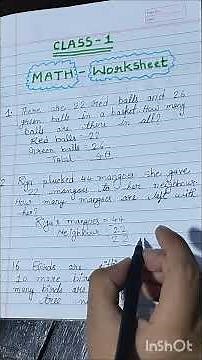 CLASS-1
MATH - Worksheet
1. There are 22 red balls and 26
green balls in a basket. How many
balls are there in all?
Red balls = 22
Green balls = 26
Total
2. Riju plucked 44 mangoes she gave
22 mangoes to her neighbour
How many mangoes are left with
her?
Riju's mangoes = 44
Neighbour 22
22
Birds are
10 more
many birds
tree
Shorts